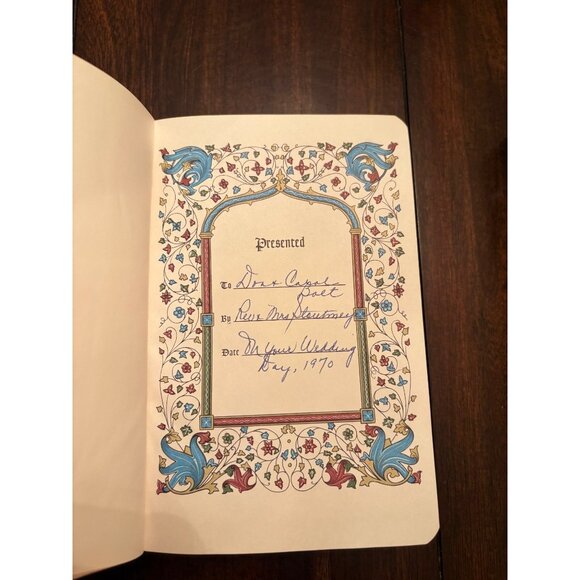 Presented
To Don & Carole
Bolt
By Rev & Mrs
Date On Your Wedding
Day, 1970